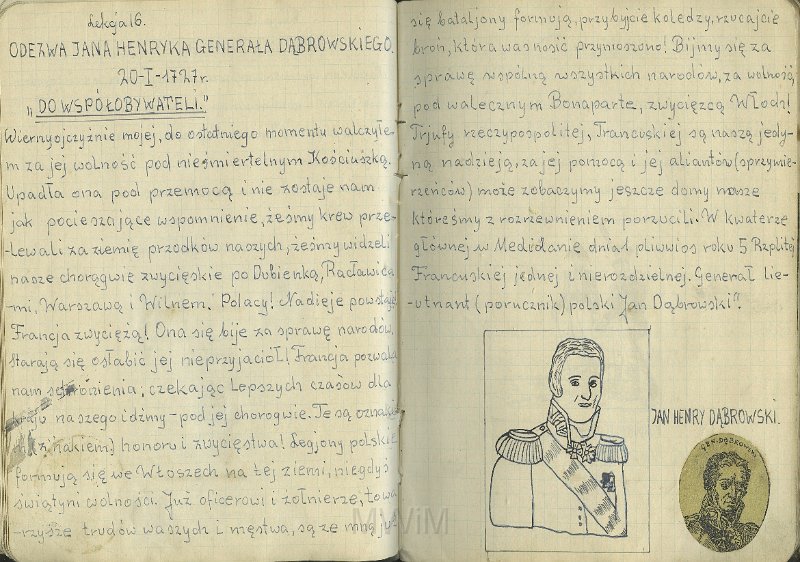 Lekcja 16.
ODEZWA JANA HENRYKA GENERAŁA DĄBROWSKIEGO.
20-I-1727r.
„DO WSPÓŁOBYWATELI."
Wierny ojczyźnie mojej, do ostatniego momentu walczyłe-
m za jej wolność pod nieśmiertelnym Kościuszką.
Upadła ona pod przemocą i nie zostaje nam
jak pocieszające wspomnienie, żeśmy krew prze-
-lewali za ziemię przodków naszych, żeśmy widzieli
nasze chorągwie zwycięskie po Dubienką, Racławica
-mi, Warszawą i Wilnem. Polacy! Nadieje powstaje
Francja zwycięża! Ona się bije za sprawę narodów,
starają się osłabić jej nieprzyjaciół! Francja pozwala
nam schronienia, czekając lepszych czasów dla
kraju naszego idźmy - pod jej chorogwie. Te są oznaką
znakiem) honoru i zwycięstwa! Legjony polskie
formują się we Włoszech na tej ziemi, niegdyś
świątyni wolności. Już oficerowi i żołnierze, towa
-rzysze trudów waszych i męstwa, są ze mną już
się bataljony formują, przybyjcie koledzy, rzucajcie
broń, która was nosić przymoszono! Bijmy się za
sprawę wspólną wszystkich narodów, za wolność,
pod walecznym Bonaparte, zwycięzcą Włoch!
Trjufy rzeczypospolitej, Francuskiej są naszą jedy-
ną nadzieją, za jej pomocą i jej aliantów (sprzymie-
rzeńców) może zobaczymy jeszcze domy nasze
któreśmy z rozrzewnieniem porzucili. W kwaterze
głównej w Mediolanie dnia 1 pliwwios roku 5 Rzplitej
Francuskiej jednej i nierozdzielnej. Generał lie-
-utnant (porucznik) polski Jan Dąbrowski".
JAN HENRY DĄBROWSKI.
GEN. DĄBROWSKI
MWiM